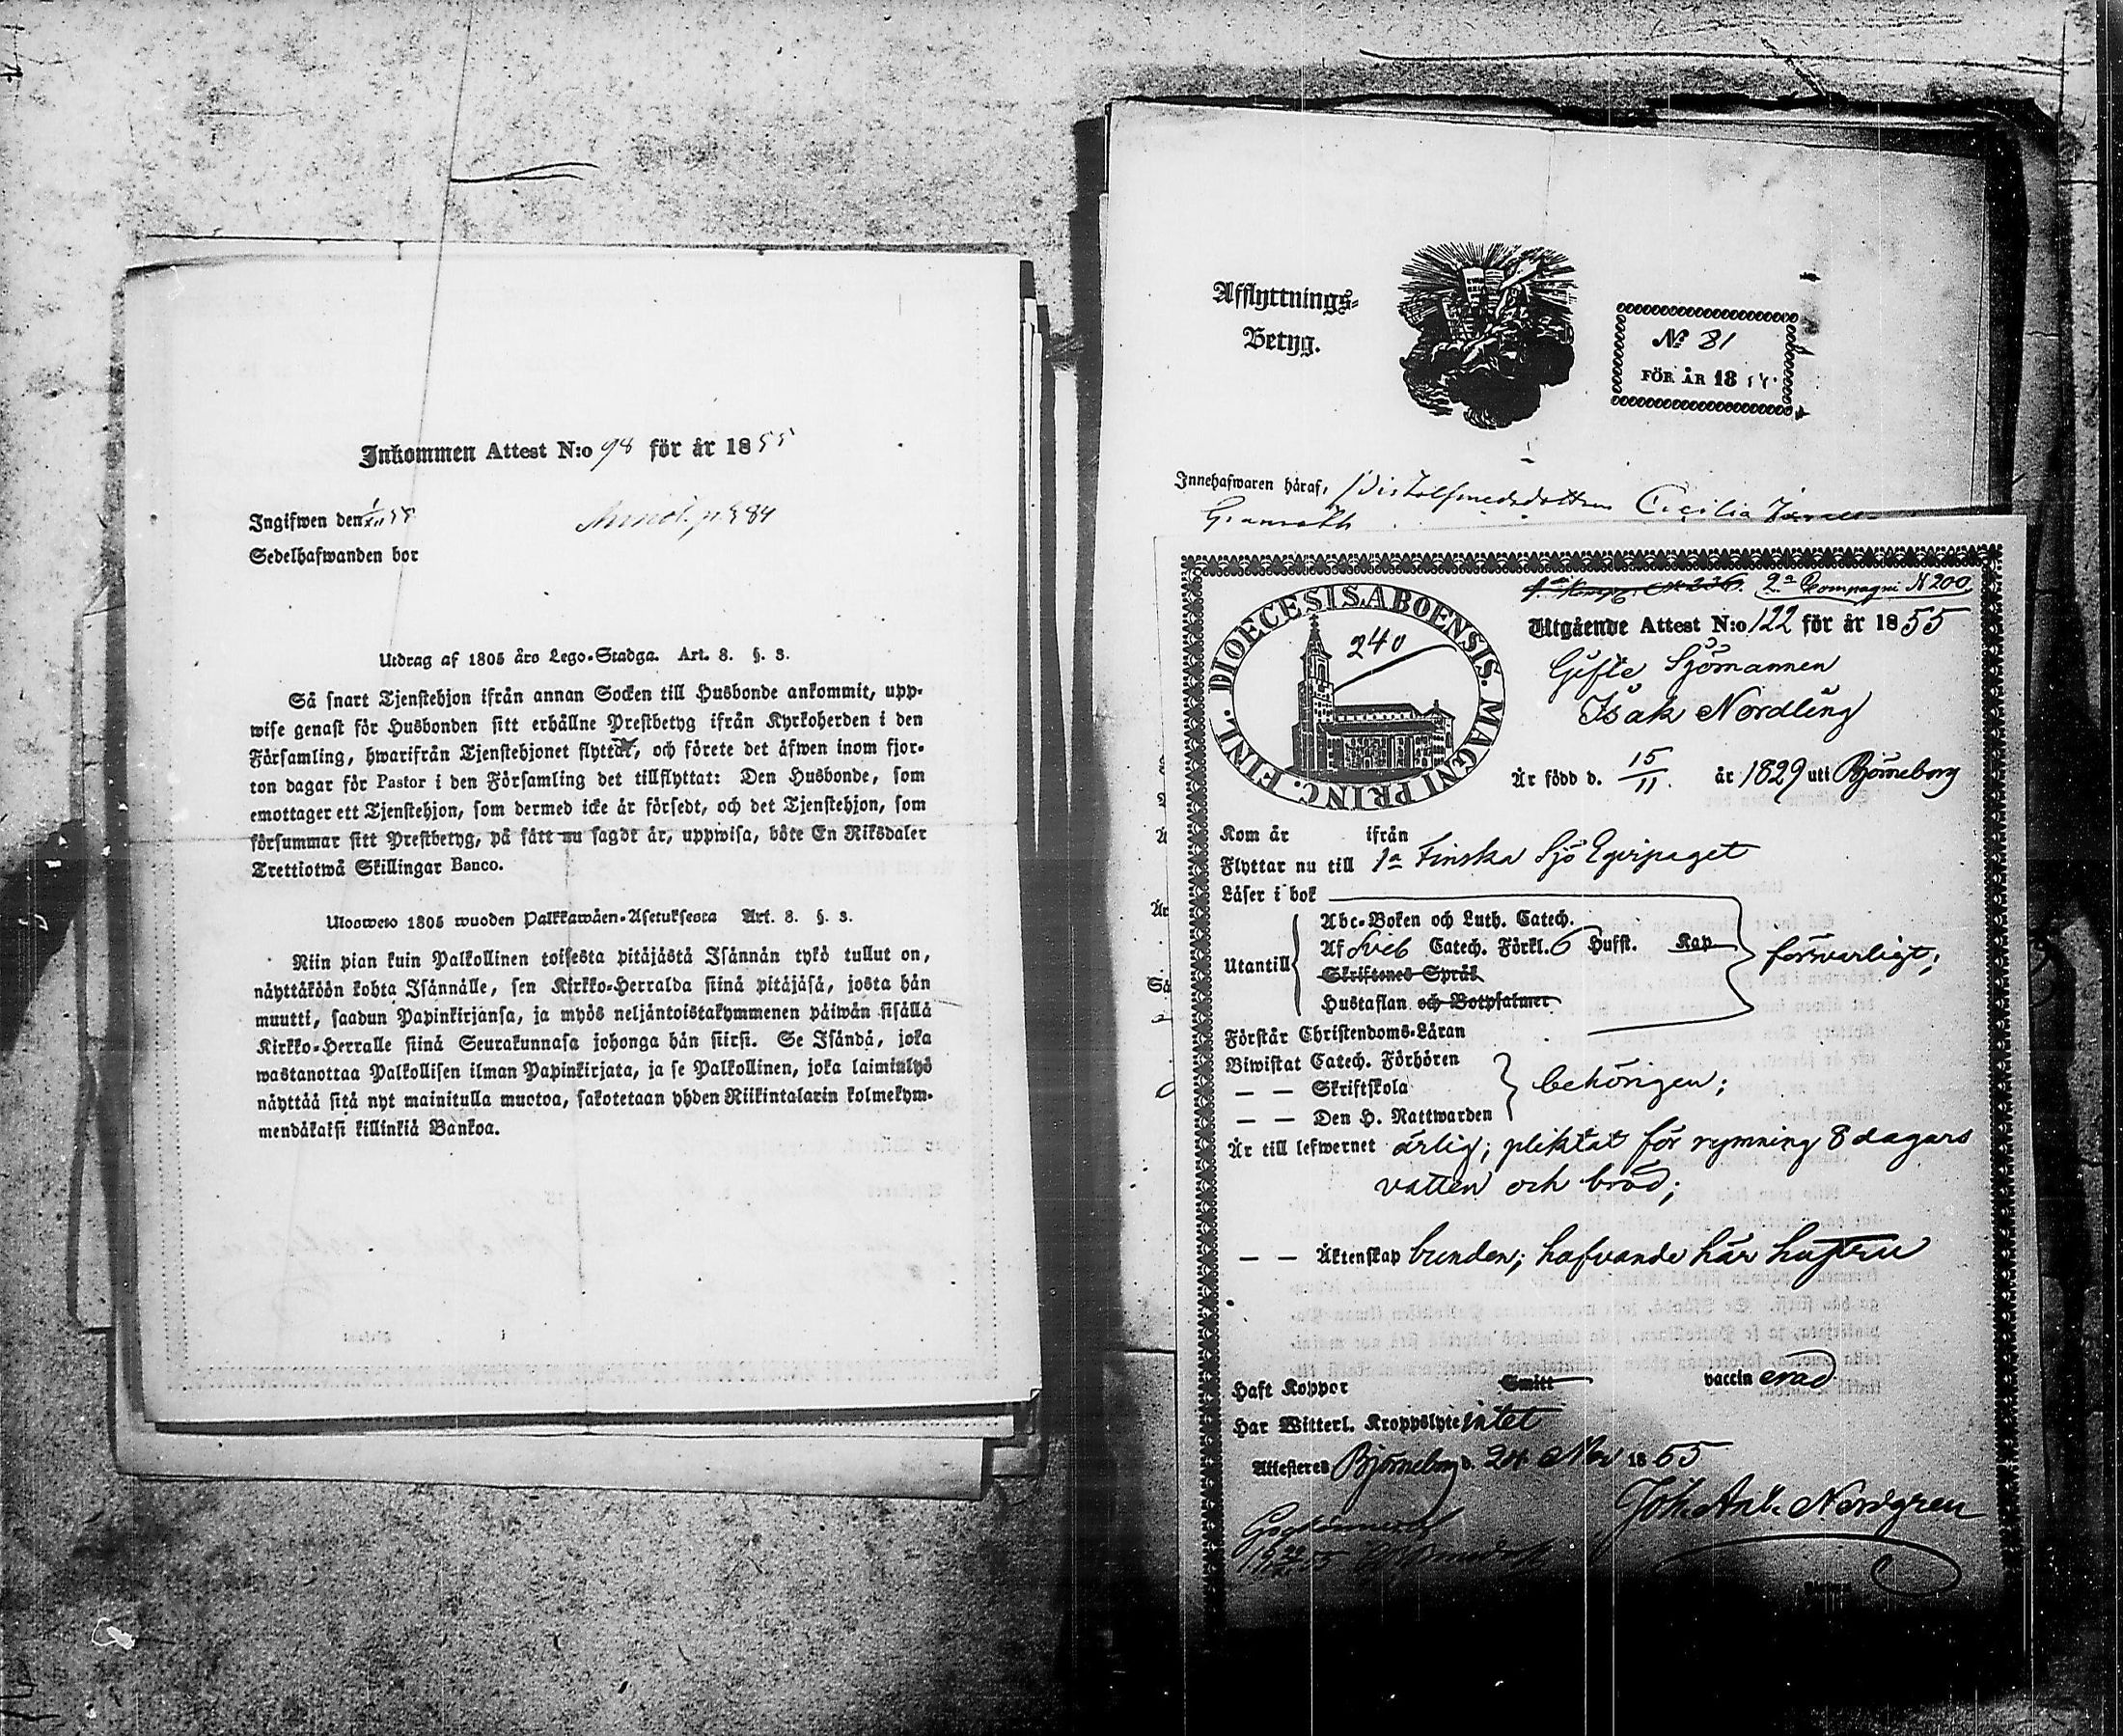 Inkommen Attest N:o 98 för år 1855
Ingifwen den
Sedelhafwanden bor
Utdrag af 1805 års Lego-Stadga. Art. 8. §. 3.
Så snart Tjenstehjon ifrån annan Socken till Husbonde ankommit, upp-
wise genast för Husbonden sitt erhållne Prestbetyg ifrån Kyrkoherden i den
Församling, hwarifrån Tjenstehjonet flyttat, och förete det äfwen inom fjor-
ton dagar för Pastor i den Församling det tillflyttat: Den Husbonde, som
emottager ett Tjenstehjon, som dermed icke är försedt, och det Tjenstehjon, som
försummar sitt Prestbetyg, på sätt nu sagdt är, uppwisa, böte En Riksdaler
Trettiotwå Skillingar Banco.
Ulosweto 1805 wuoden Palkkawäen-Asetuksesta Art. 8. §. 3.
Niin pian kuin Palkollinen toisesta pitäjästä Isännän tykö tullut on,
näyttäköön kohta Isännälle, sen Kirkko-Herralda siinä pitäjäsä, josta hän
muutti, saadun Papinkirjansa, ja myös neljäntoistakymmenen päiwän sisällä
Kirkko-Herralle siinä Seurakunnasa johonga hän siirsi. Se Isändä, joka
wastanottaa Palkollisen ilman Papinkirjata, ja se Palkollinen, joka laiminlyö
näyttää sitä nyt mainitulla muotoa, sakotetaan yhden Riikintalarin kolmekym-
mendäkaksi killinkiä Bankoa.
Afflyttnings-
Betyg.
No 81
FÖR ÅR 18
Innehafwaren häraf, Cecilia
DIOECESIS ABOENSIS. MAGNI PRINC. FINL.
240
2a Compagni N 200
Utgående Attest N:o 122 för år 1855
Gifte Sjömannen
Isak Nordling
Är född d. 15/11. år 1829 uti Björneborg
Kom år ifrån
Flyttar nu till 1a Finska Sjö Eqvipaget
Läser i bok
Utantill
Abc-Boken och Luth. Catech.
Af Sveb Catech. Förkl. 6 Hufst. Kap
Skriftenes Språk
Hustaflan och Botpsalmer
försvarligt;
Förstår Christendoms-Läran
Biwistat Catech. Förhören
— — Skriftskola
— — Den H. Nattwarden
behörigen;
Är till lefwernet ärlig; pliktat för rymning 8 dagars
vatten och bröd;
— — Äktenskap bunden; hafvande här hustru
Haft Koppor Smitt vaccin erad
Har Witterl. Kroppslyte intet
Attesteras Björneborg d. 24 Nov 1855
Joh. Ant. Nordgren